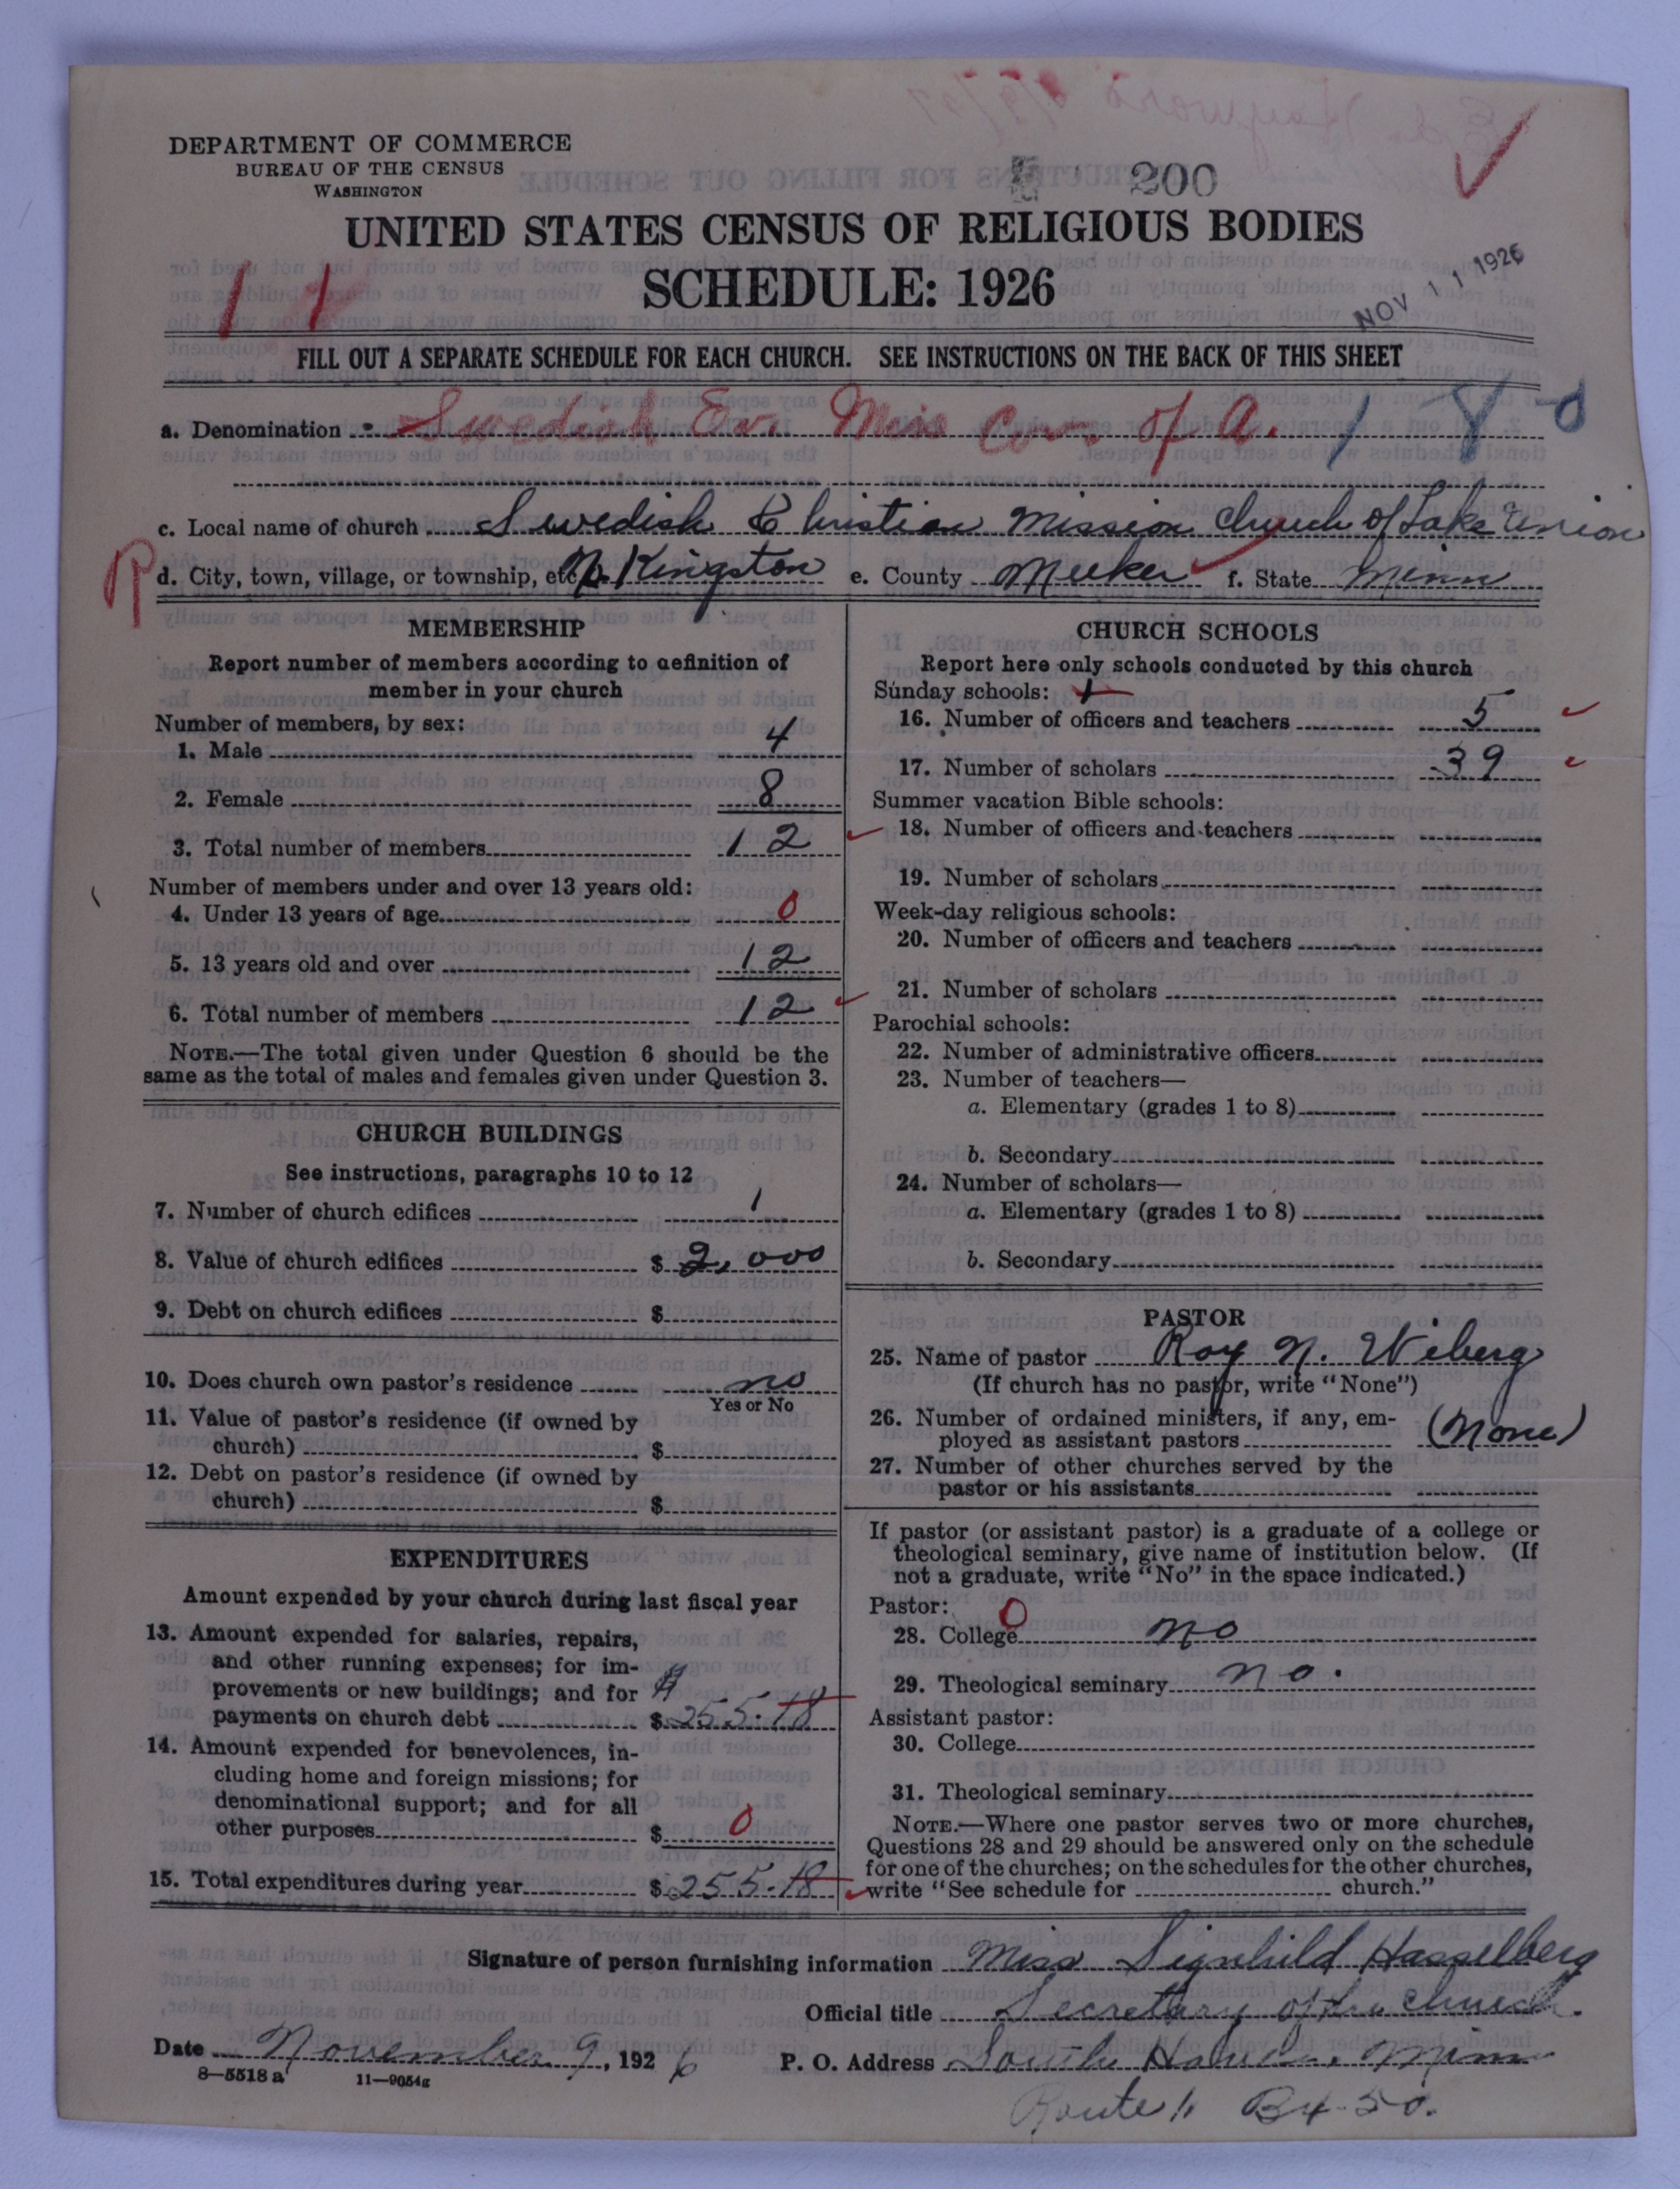 DEPARTMENT OF COMMERCE
BUREAU OF THE CENSUS
WASHINGTON
200
UNITED STATES CENSUS OF RELIGIOUS BODIES
SCHEDULE: 1926
NOV 11 1926
1 1
FILL OUT A SEPARATE SCHEDULE FOR EACH CHURCH. SEE INSTRUCTIONS ON THE BACK OF THIS SHEET
a. Denomination Swedish Ev. Miss Cov. of A. 1 8-0
c. Local name of church Swedish Christian Mission Church of Lake Union
R
d. City, town, village, or township, etc. Kingston e. County Meeker f. State Minn
MEMBERSHIP
Report number of members according to definition of
member in your church
Number of members, by sex:
1. Male 4
2. Female 8
3. Total number of members 12
Number of members under and over 13 years old:
4. Under 13 years of age 0
5. 13 years old and over 12
6. Total number of members 12
NOTE.—The total given under Question 6 should be the
same as the total of males and females given under Question 3.
CHURCH BUILDINGS
See instructions, paragraphs 10 to 12
7. Number of church edifices 1
8. Value of church edifices $ 2,000
9. Debt on church edifices $
10. Does church own pastor's residence no
Yes or No
11. Value of pastor's residence (if owned by
church) $
12. Debt on pastor's residence (if owned by
church) $
EXPENDITURES
Amount expended by your church during last fiscal year
13. Amount expended for salaries, repairs,
and other running expenses; for im-
provements or new buildings; and for $
payments on church debt $ 255.18
14. Amount expended for benevolences, in-
cluding home and foreign missions; for
denominational support; and for all
other purposes $ 0
15. Total expenditures during year $ 255.18
CHURCH SCHOOLS
Report here only schools conducted by this church
Sunday schools: 1
16. Number of officers and teachers 5
17. Number of scholars 39
Summer vacation Bible schools:
18. Number of officers and teachers
19. Number of scholars
Week-day religious schools:
20. Number of officers and teachers
21. Number of scholars
Parochial schools:
22. Number of administrative officers
23. Number of teachers—
a. Elementary (grades 1 to 8)
b. Secondary
24. Number of scholars—
a. Elementary (grades 1 to 8)
b. Secondary
PASTOR
25. Name of pastor Roy N. Wiberg
(If church has no pastor, write "None")
26. Number of ordained ministers, if any, em-
ployed as assistant pastors (None)
27. Number of other churches served by the
pastor or his assistants
If pastor (or assistant pastor) is a graduate of a college or
theological seminary, give name of institution below. (If
not a graduate, write "No" in the space indicated.)
Pastor: 0
28. College no
29. Theological seminary no.
Assistant pastor:
30. College
31. Theological seminary
NOTE.—Where one pastor serves two or more churches,
Questions 28 and 29 should be answered only on the schedule
for one of the churches; on the schedules for the other churches,
write "See schedule for church."
Signature of person furnishing information Miss Signhild Hasselberg
Official title Secretary of the church.
Date November 9, 1926 P. O. Address South Haven, Minn
8—5518 a 11—9054g
Route 1. Bx 50.